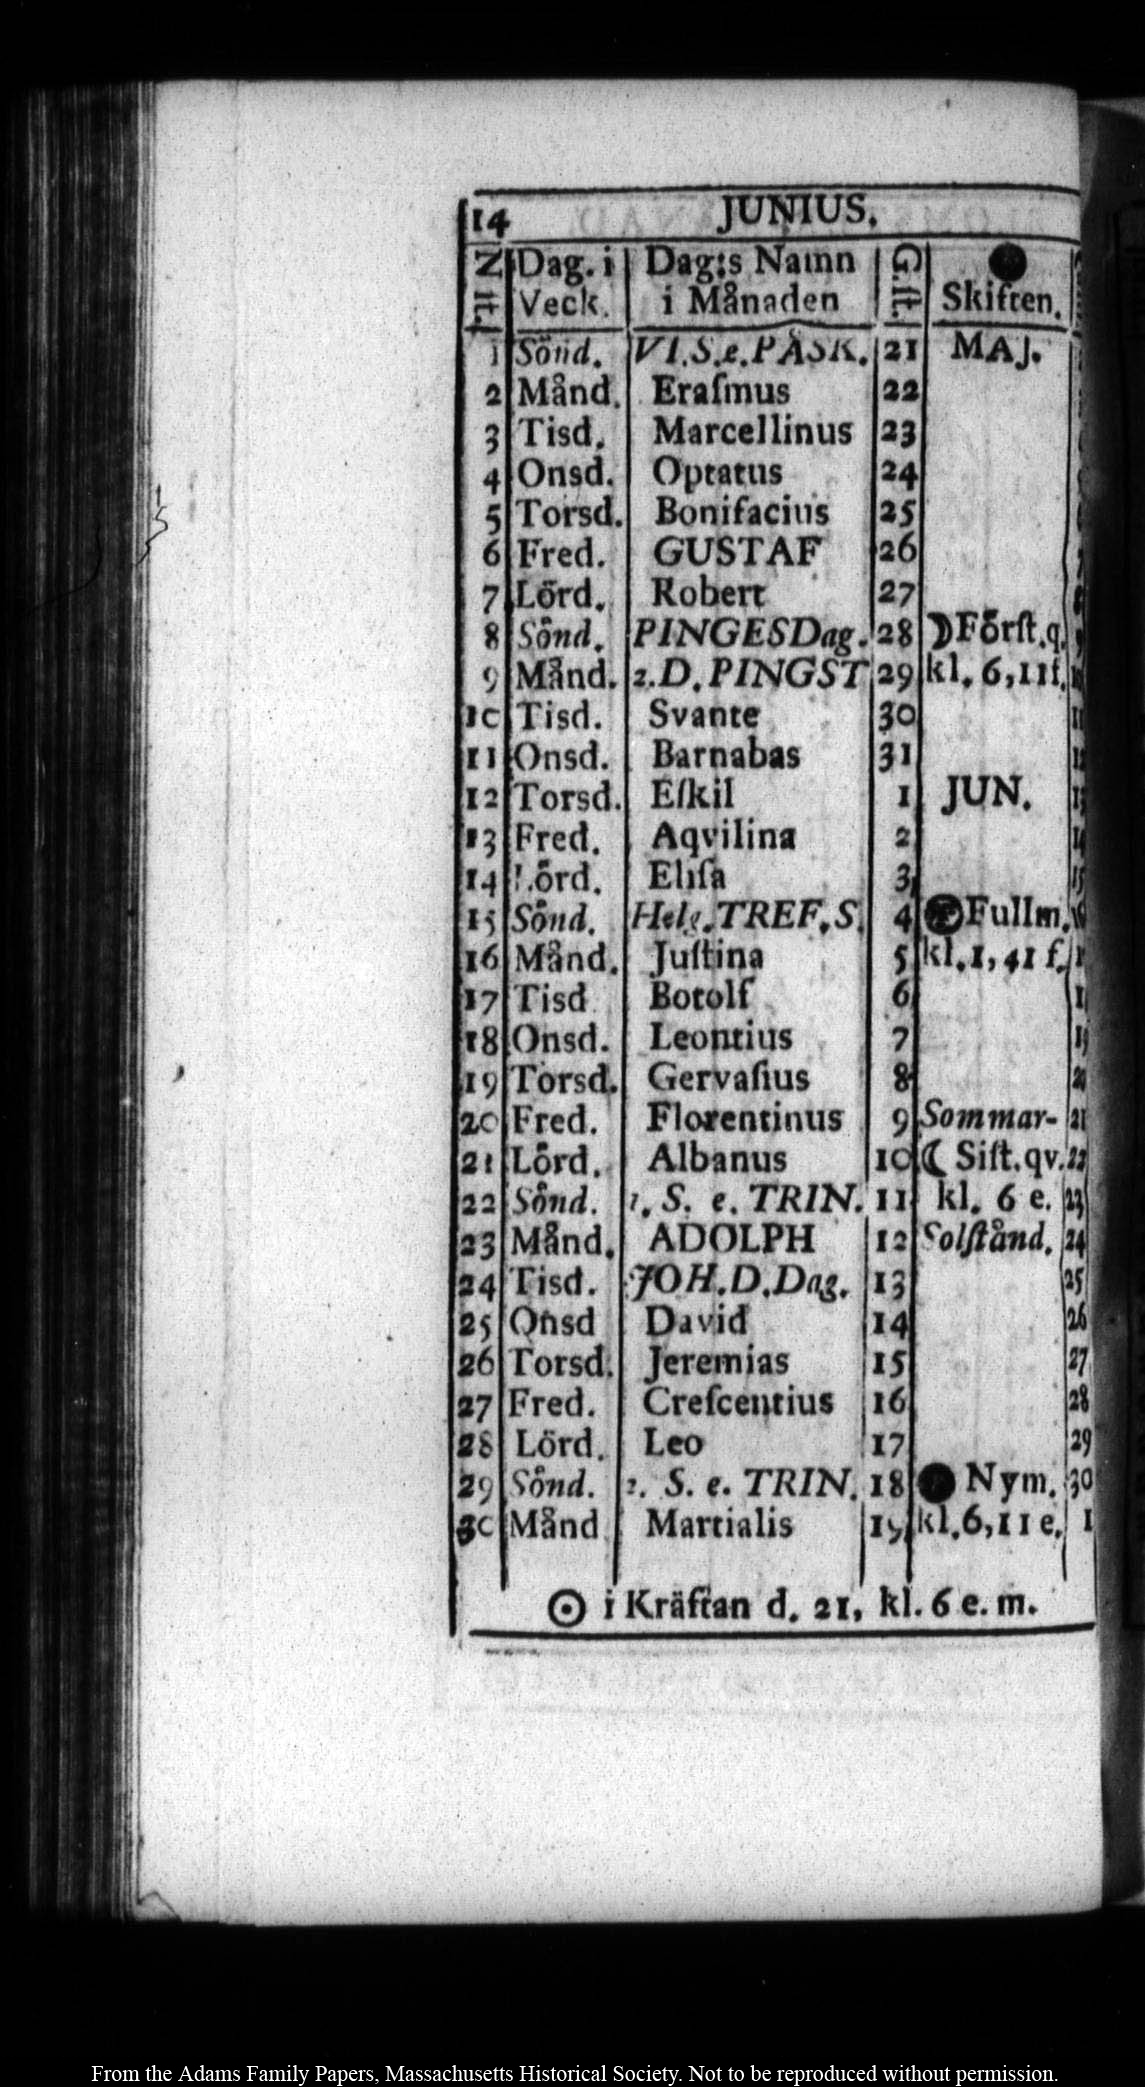 14 JUNIUS.
N. st. Dag. i Veck. Dag:s Namn i Månaden G. st. Skiften.
1 Sönd. VI.S.e.PÅSK. 21 MAJ.
2 Månd. Eraſmus 22
3 Tisd. Marcellinus 23
4 Onsd. Optatus 24
5 Torsd. Bonifacius 25
6 Fred. GUSTAF 26
7 Lörd. Robert 27
8 Sönd. PINGESDag. 28 ☽ Förſt.q. 9
9 Månd. 2.D.PINGST 29 kl. 6,11f. 10
10 Tisd. Svante 30 11
11 Onsd. Barnabas 31 12
12 Torsd. Eſkil 1 JUN. 13
13 Fred. Aqvilina 2 14
14 Lörd. Eliſa 3 15
15 Sönd. Helg.TREF.S. 4 Fullm. 16
16 Månd. Juſtina 5 kl.1,41 f.
17 Tisd Botolf 6
18 Onsd. Leontius 7 19
19 Torsd. Gervaſius 8 20
20 Fred. Florentinus 9 Sommar- 21
21 Lörd. Albanus 10 ☾ Siſt.qv. 22
22 Sönd. 1. S. e. TRIN. 11 kl. 6 e. 23
23 Månd. ADOLPH 12 Solſtånd. 24
24 Tisd. JOH.D.Dag. 13 25
25 Onsd David 14 26
26 Torsd. Jeremias 15 27
27 Fred. Creſcentius 16 28
28 Lörd. Leo 17 29
29 Sönd. 2. S. e. TRIN. 18 Nym. 30
30 Månd Martialis 19 kl.6,11 e. 1
☉ i Kräftan d. 21, kl. 6 e. m.
From the Adams Family Papers, Massachusetts Historical Society. Not to be reproduced without permission.